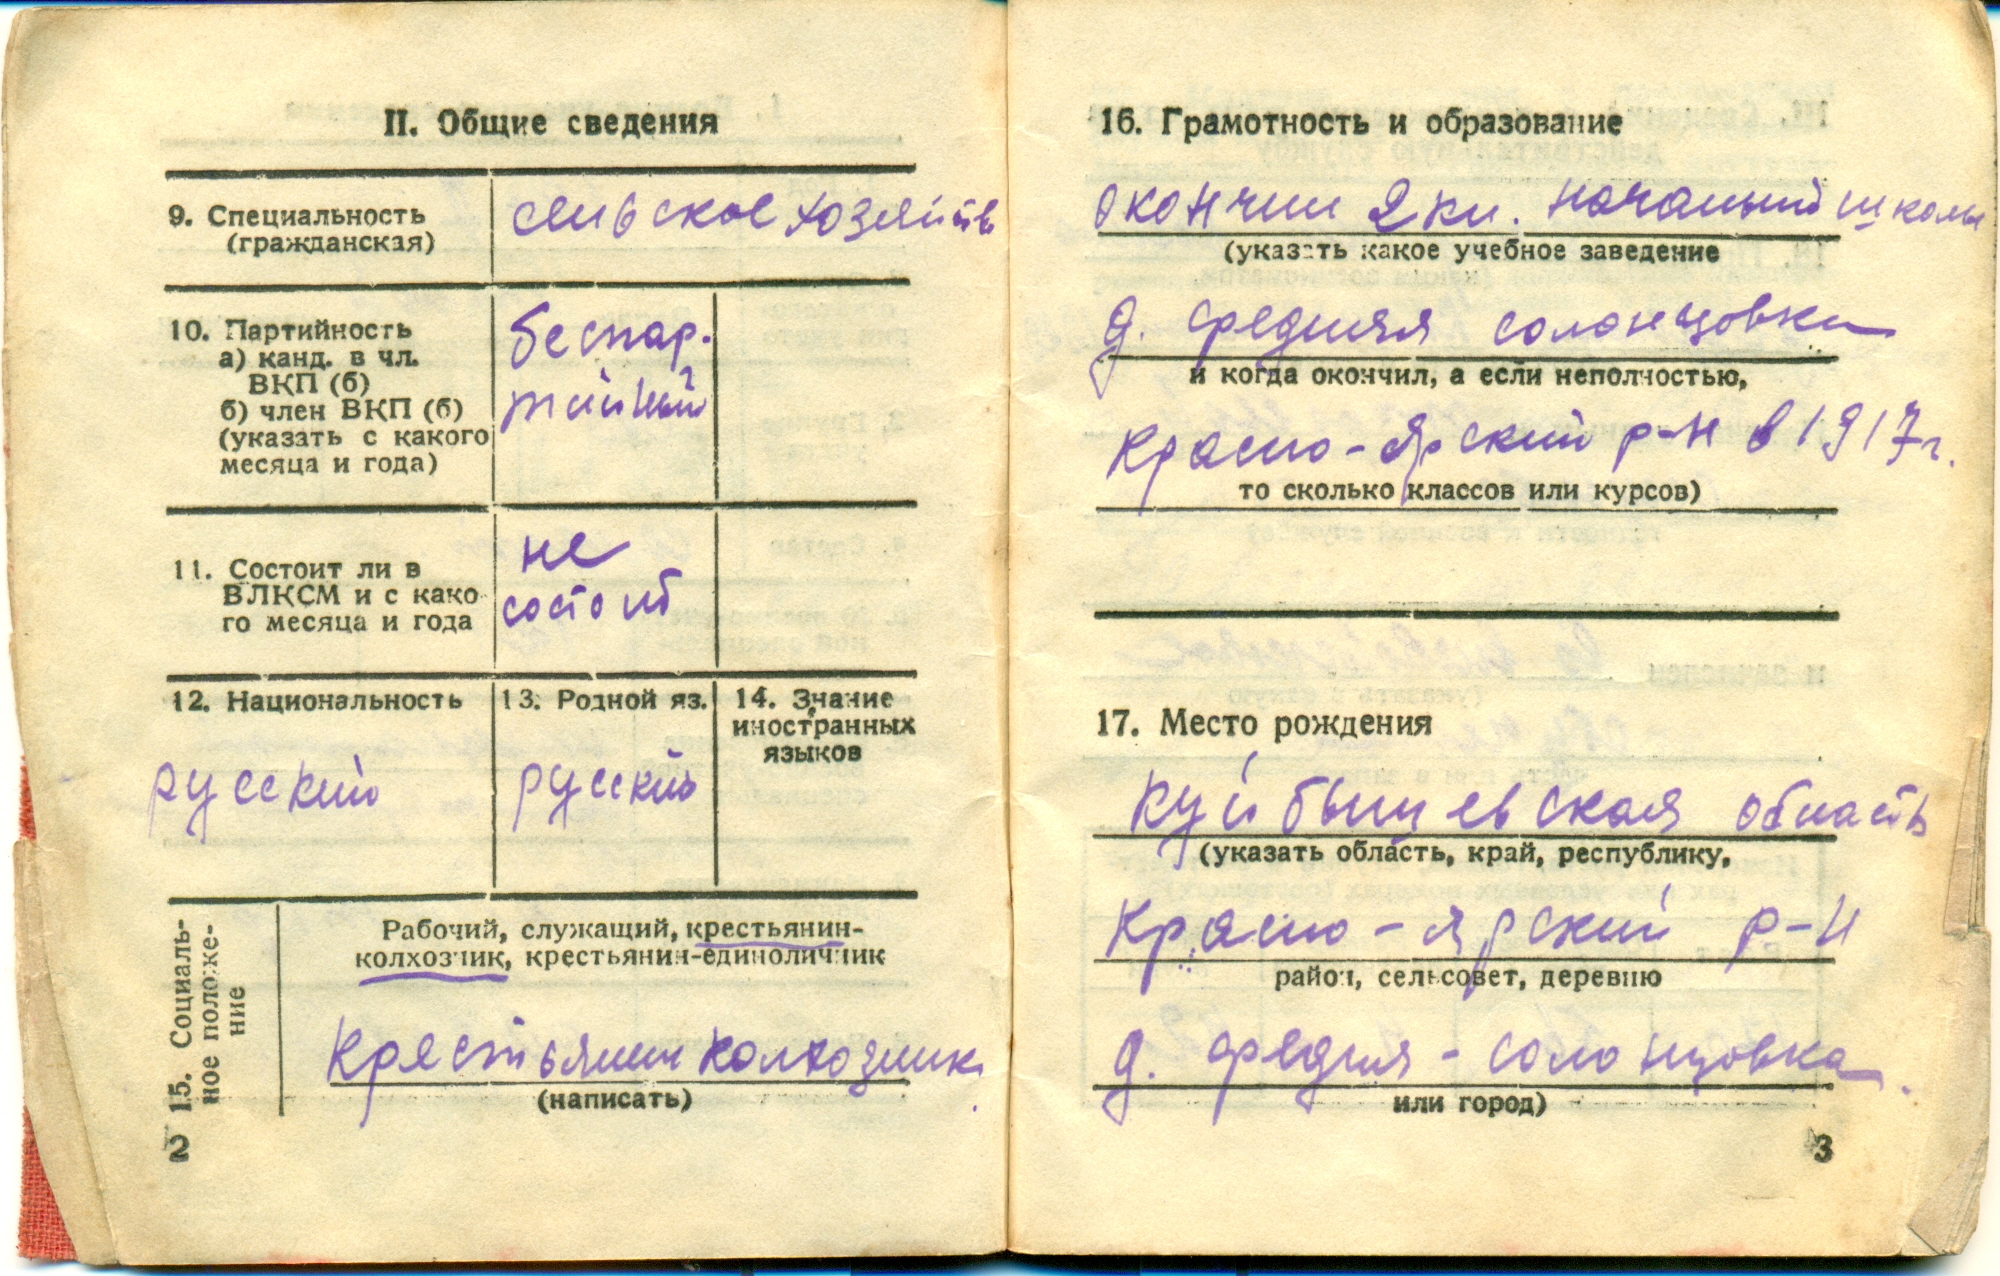 II. Общие сведения
9. Специальность
(гражданская)
сельское хозяйств
10. Партийность
а) канд. в чл.
ВКП (б)
б) член ВКП (б)
(указать с какого
месяца и года)
беспар-
тийный
11. Состоит ли в
ВЛКСМ и с како
го месяца и года
не
состоит
12. Национальность
русский
13. Родной яз.
русский
14. Знание
иностранных
языков
15. Социаль-
ное положе-
ние
Рабочий, служащий, крестьянин-
колхозник, крестьянин-единоличник
Крестьянин колхозник
(написать)
2
16. Грамотность и образование
окончил 2 кл. начальный школы
(указать какое учебное заведение
д. средняя солонцовка
и когда окончил, а если неполностью,
Красно-Ярский р-н в 1917 г.
то сколько классов или курсов)
17. Место рождения
Куйбышевская область
(указать область, край, республику,
Красно-Ярский р-н
район, сельсовет, деревню
д. средняя - солонцовка
или город)
3